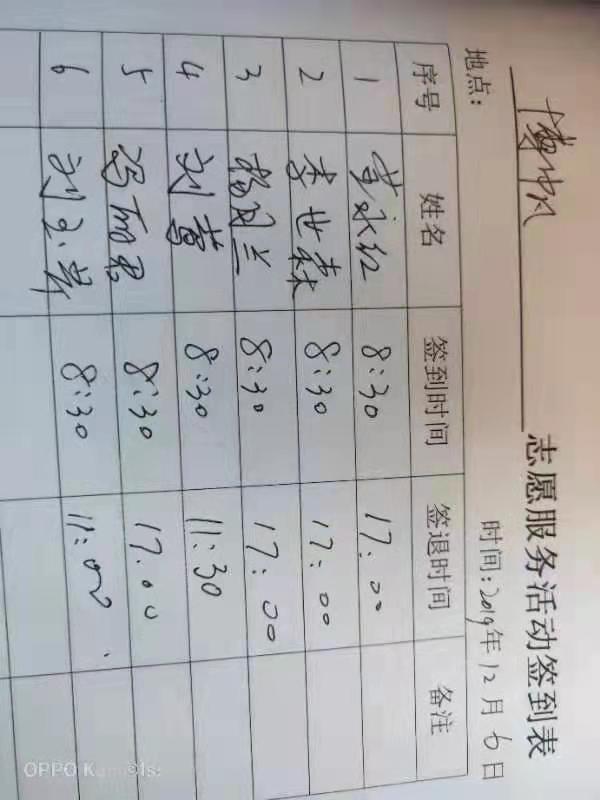 志愿服务活动签到表
地点: 时间:2019年12月6日
序号 姓名 签到时间 签退时间 备注
1 永红 8:30 17.00
2 李世森 8:30 17:00
3 杨国兰 8:30 17:00
4 刘 8:30 11:30
5 冯丽君 8:30 17.00
6 刘 8:30 11:00
OPPO